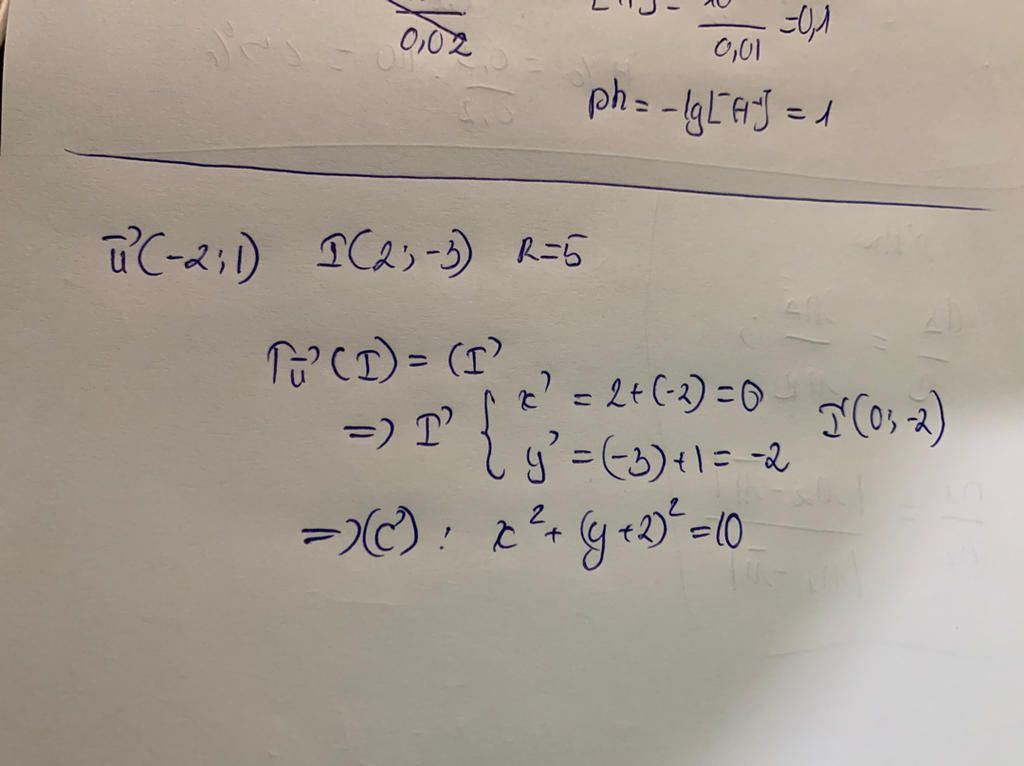 0,02
0,01 =0,1
ph = -lg[H⁺] = 1
u⃗(-2;1) I(2;-3) R=5
Tu⃗(I) = (I'
=> I' { x' = 2+(-2) = 0
y' = (-3)+1 = -2 I'(0;-2)
=>(C'): x² + (y+2)² = 10